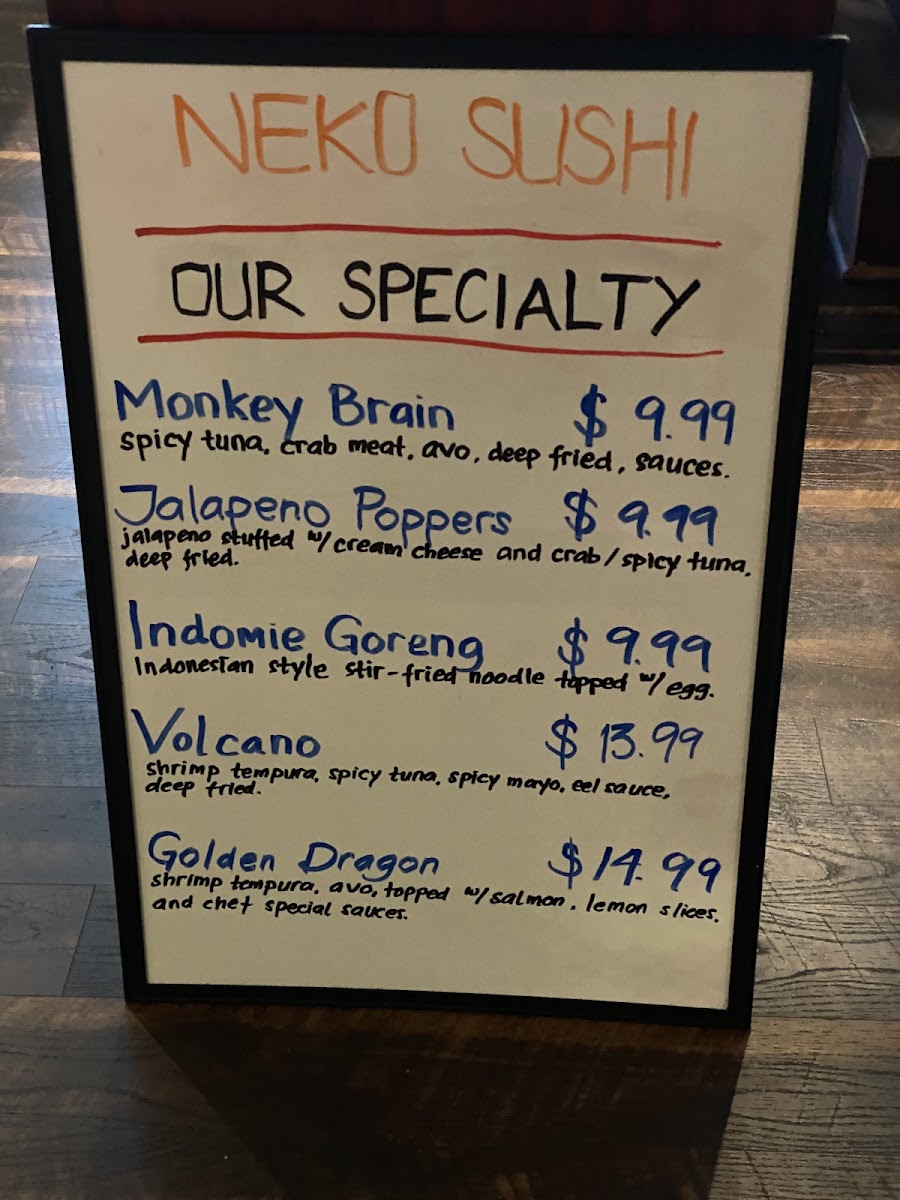 NEKO SUSHI
OUR SPECIALTY
Monkey Brain $ 9.99
spicy tuna, crab meat, avo, deep fried, sauces.
Jalapeno Poppers $ 9.99
jalapeno stuffed w/ cream cheese and crab/spicy tuna,
deep fried.
Indomie Goreng $ 9.99
Indonesian style stir-fried noodle topped w/ egg.
Volcano $ 13.99
shrimp tempura, spicy tuna, spicy mayo, eel sauce,
deep fried.
Golden Dragon $ 14.99
shrimp tempura, avo, topped w/ salmon, lemon slices,
and chef special sauces.